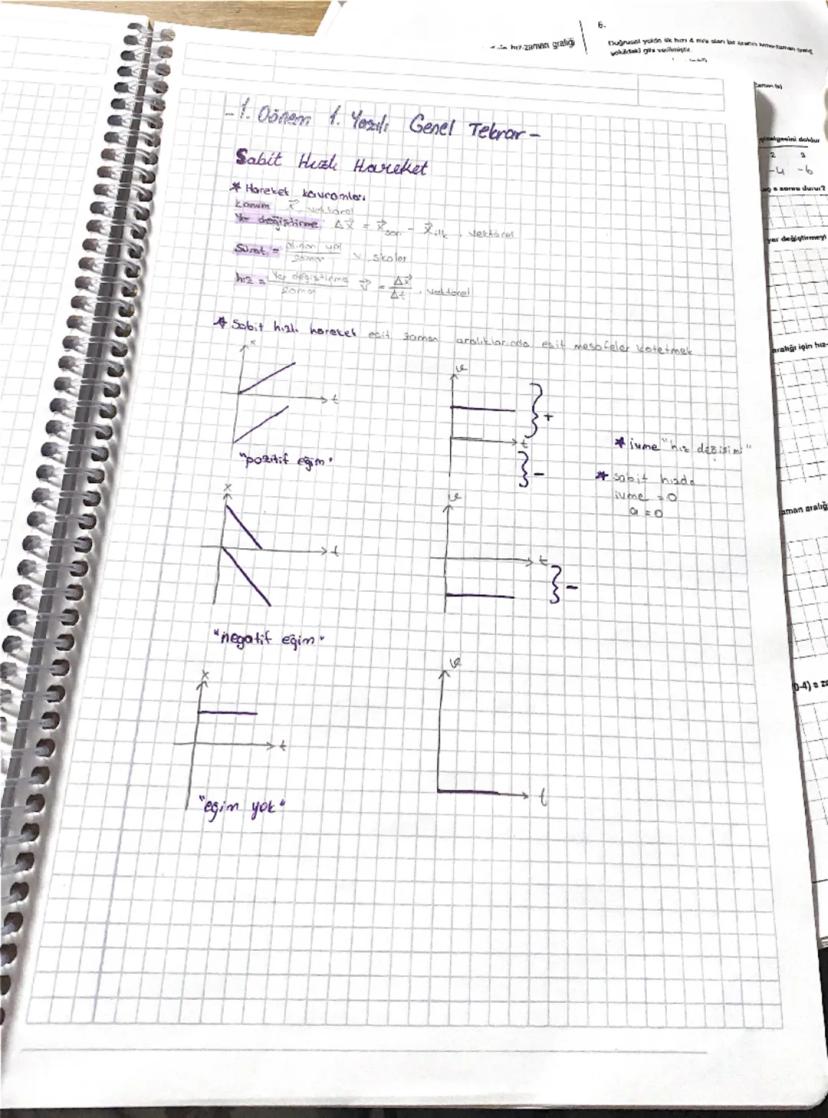 6.
hız-zaman grafiği
Doğrusal yolda ilk hızı 4 m/s olan bir aracın ivme-zaman grafiği
şekildeki gibi verilmiştir.
- 1. Dönem 1. Yazılı Genel Tekrar -
Sabit Hızlı Hareket
* Hareket kavramları
konum x vektörel
Yer değiştirme Δx = x son - x ilk, vektörel
Sürat = Alınan yol / zaman, skaler
hız = Yer değiştirme / zaman v = Δx / Δt, vektörel
* Sabit hızlı hareket eşit zaman aralıklarında eşit mesafeler katetmek
x
t
"pozitif eğim"
v
t
+
-
* ivme "hız değişimi"
* Sabit hızda
ivme = 0
a = 0
x
t
"negatif eğim"
v
t
-
x
t
"eğim yok"
v
t
2 3
-4 -6
s sonra durur?
yer değiştirmeyi
aralığı için hız-